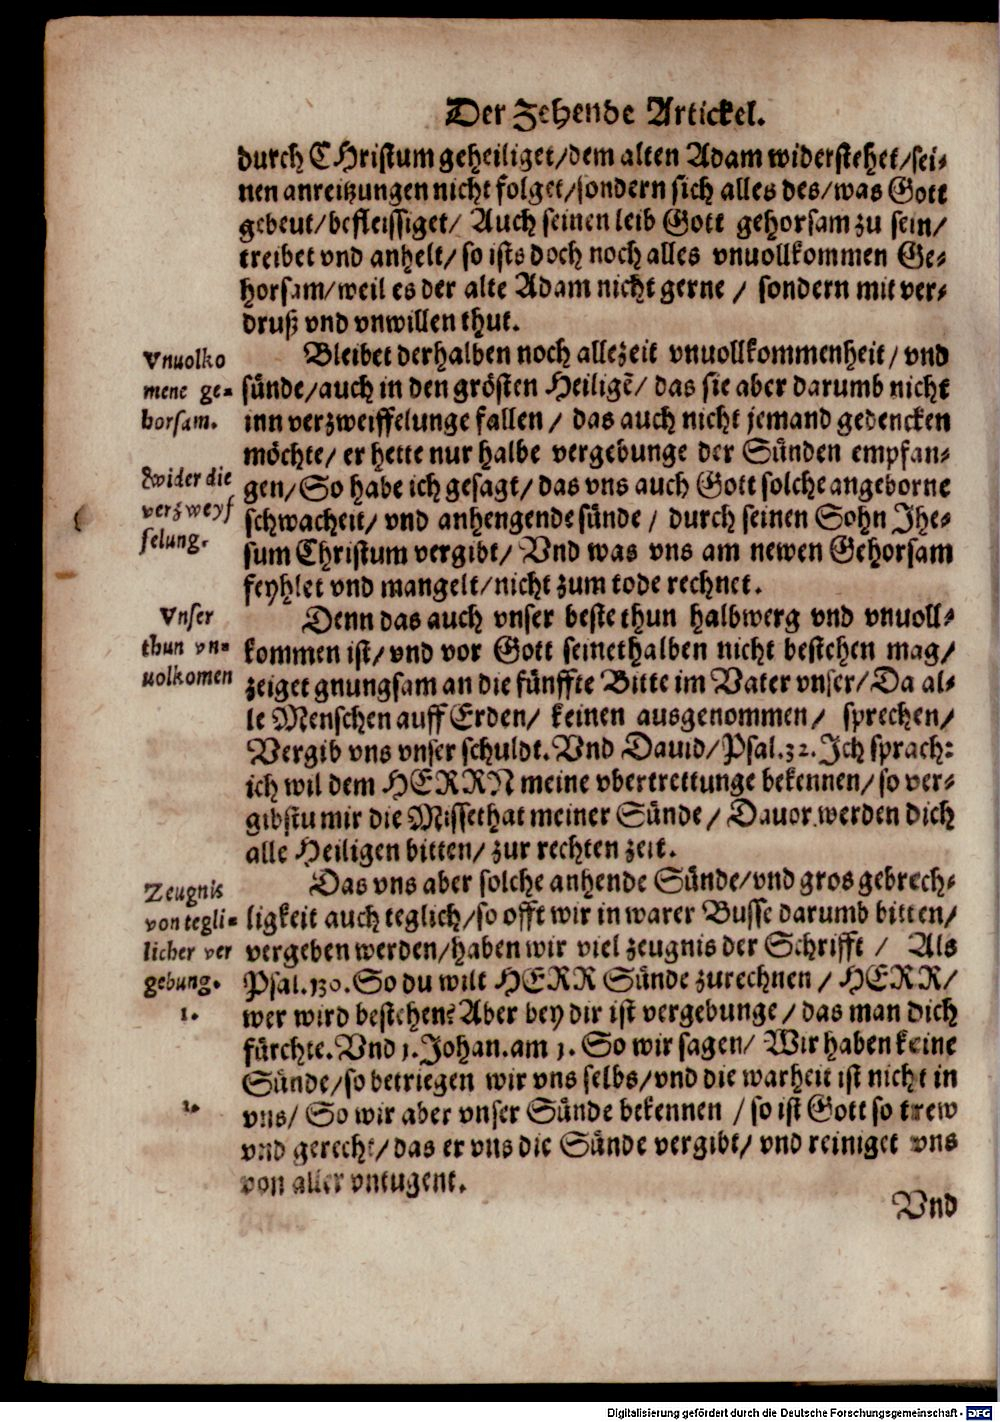 Der Zehende Artickel.
durch CHristum geheiliget/dem alten Adam widerstehet/sei-
nen anreitzungen nicht folget/sondern sich alles des/was Gott
gebeut/befleissiget/ Auch seinen leib Gott gehorsam zu sein/
treibet vnd anhelt/ so ists doch noch alles vnuollkommen Ge-
horsam/weil es der alte Adam nicht gerne / sondern mit ver-
druß vnd vnwillen thut.
Vnuolko
mene ge-
horsam.
Bleibet derhalben noch allezeit vnuollkommenheit/ vnd
sünde/auch in den grösten Heiligē/ das sie aber darumb nicht
inn verzweiffelunge fallen / das auch nicht jemand gedencken
möchte/ er hette nur halbe vergebunge der Sünden empfan-
Zwider die
verzweyf
felung.
gen/ So habe ich gesagt/ das vns auch Gott solche angeborne
schwacheit/ vnd anhengende sünde / durch seinen Sohn Jhe-
sum Christum vergibt/ Vnd was vns am newen Gehorsam
feyhlet vnd mangelt/nicht zum tode rechnet.
Vnser
thun vn-
uolkomen
Denn das auch vnser beste thun halbwerg vnd vnuoll-
kommen ist/ vnd vor Gott seinethalben nicht bestehen mag/
zeiget gnungsam an die fünffte Bitte im Vater vnser/ Da al-
le Menschen auff Erden/ keinen ausgenommen/ sprechen/
Vergib vns vnser schuldt. Vnd Dauid/ Psal. 32. Jch sprach:
ich wil dem HERRN meine vbertrettunge bekennen/ so ver-
gibstu mir die Missethat meiner Sünde/ Dauor werden dich
alle Heiligen bitten/ zur rechten zeit.
Zeugnis
von tegli-
licher ver
gebung.
Das vns aber solche anhende Sünde/vnd gros gebrech-
ligkeit auch teglich/so offt wir in warer Busse darumb bitten/
vergeben werden/haben wir viel zeugnis der Schrifft / Als
1.
Psal. 130. So du wilt HERR Sünde zurechnen / HERR/
wer wird bestehen? Aber bey dir ist vergebunge / das man dich
fürchte. Vnd 1. Johan. am 1. So wir sagen/ Wir haben keine
Sünde/so betriegen wir vns selbs/vnd die warheit ist nicht in
2.
vns/ So wir aber vnser Sünde bekennen / so ist Gott so trew
vnd gerecht/ das er vns die Sünde vergibt/ vnd reiniget vns
von aller vntugent.
Vnd
Digitalisierung gefördert durch die Deutsche Forschungsgemeinschaft - DFG